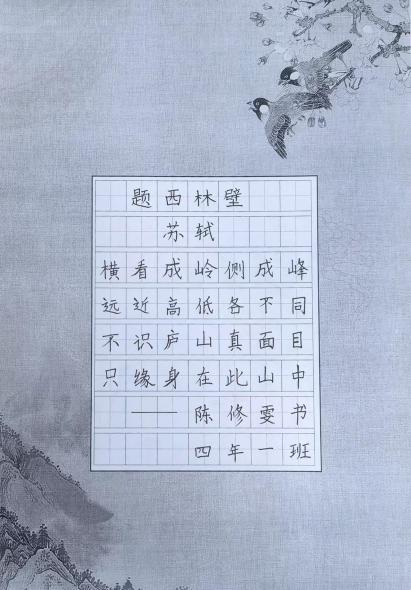 题西林壁
苏轼
横看成岭侧成峰
远近高低各不同
不识庐山真面目
只缘身在此山中
——陈修雯书
四年一班